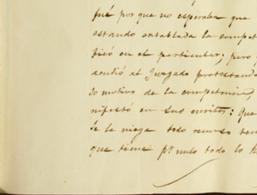 fué por que no esperaba que
estando entablada la compet
ficó en el particular, pero
acudió al Juzgado protestand
do motivo de la competencia,
nifestó en sus escritos: Que
se le niega todo recurso ten
que tiene por nulo todo lo